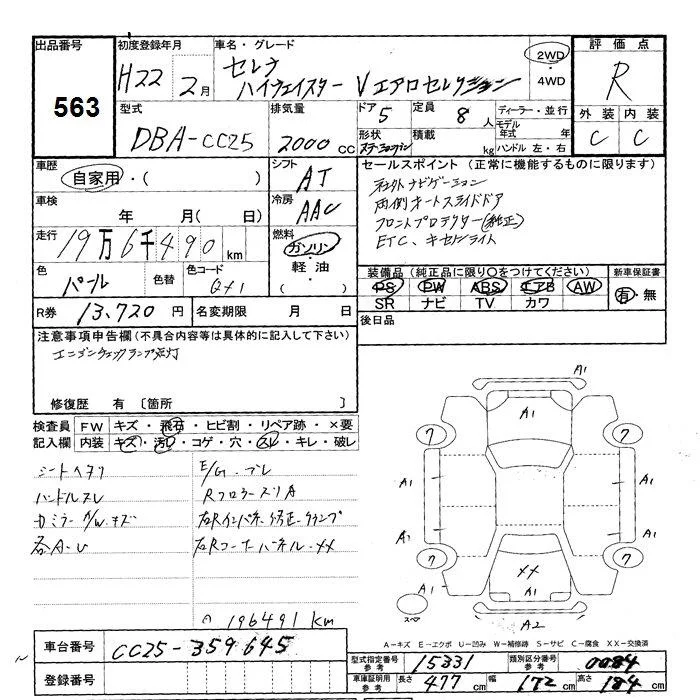 出品番号
563
初度登録年月
H22年 2月
車名・グレード
セレナ
ハイウェイスター Vエアロセレクション
2WD
・
4WD
評価点
R
外装 内装
C C
型式
DBA-CC25
排気量
2000cc
ドア 5
定員 8人
形状 ステーションワゴン
積載 kg
ディーラー・並行
モデル
年式 年
ハンドル 左・右
車歴
自家用・( )
シフト
AT
セールスポイント (正常に機能するものに限ります)
社外ナビゲーション
両側オートスライドドア
フロントプロテクター(純正)
ETC、キセノンライト
車検
年 月( 日)
冷房
AAC
走行
19万6千490km
燃料
ガソリン
・
軽油
・
( )
色
パール
色替
色コード
QX1
装備品(純正品に限り○をつけてください)
PS PW ABS エアB AW
SR ナビ TV カワ
新車保証書
有・無
R券 13,720円
名変期限 月 日
後日品
注意事項申告欄(不具合内容等は具体的に記入して下さい)
エンジンチェックランプ点灯
修復歴 有 [箇所
検査員
記入欄
FW キズ・飛石・ヒビ割・リペア跡・×要
内装 キズ・汚れ・コゲ・穴・スレ・キレ・破レ
シートヘタリ
ハンドルスレ
各A・U
E/G・ブレ
RフロアースリA
右Rインパネ修正・クランプ
右Rコーナーパネル・XX
196491 km
A1
A1
7 7
A1 A1
A2 A1
7 7
XX
A1 A1 A1
A2
スペア
A-キズ E-エクボ U-凹み W-補修跡 S-サビ C-腐食 XX-交換済
車台番号 CC25-359645
登録番号
型式指定番号
参考
15331
類別区分番号
参考
0084
車庫証明用
参考
長さ 477 cm
幅 172 cm
高さ 184 cm